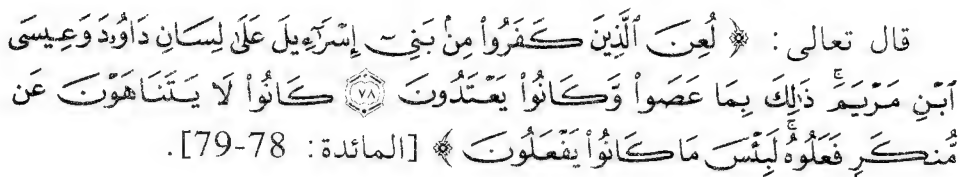 قال تعالى: ﴿ لُعِنَ ٱلَّذِينَ كَفَرُوا۟ مِنۢ بَنِىٓ إِسْرَٰٓءِيلَ عَلَىٰ لِسَانِ دَاوُۥدَ وَعِيسَى
ٱبْنِ مَرْيَمَ ۚ ذَٰلِكَ بِمَا عَصَوا۟ وَّكَانُوا۟ يَعْتَدُونَ ۝٧٨ كَانُوا۟ لَا يَتَنَاهَوْنَ عَن
مُّنكَرٍ فَعَلُوهُ ۚ لَبِئْسَ مَا كَانُوا۟ يَفْعَلُونَ ﴾ [المائدة: 78-79].